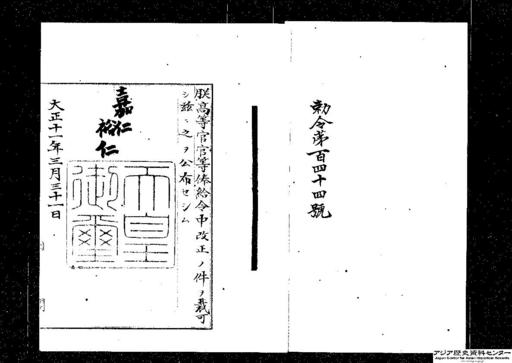 勅令第百四十四號
朕高等官官等俸給令中改正ノ件ヲ裁可
シ茲ニ之ヲ公布セシム
嘉仁
裕仁
天皇
御璽
大正十一年三月三十一日
アジア歴史資料センター
Japan Center for Asian Historical Records